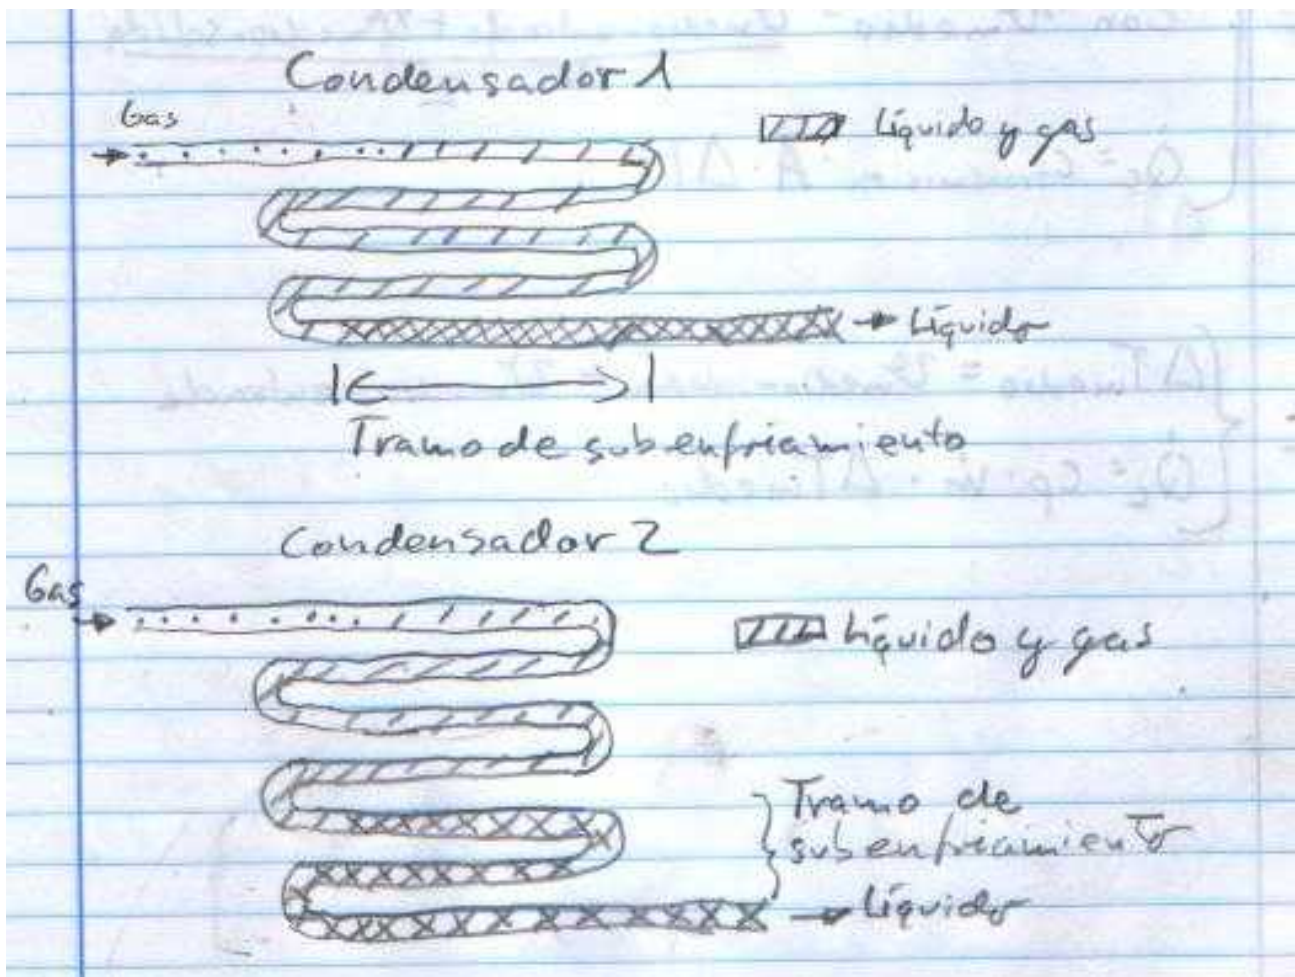 Condensador 1
Gas
Líquido y gas
Líquido
Tramo de subenfriamiento
Condensador 2
Gas
Líquido y gas
Tramo de
subenfriamiento
Líquido